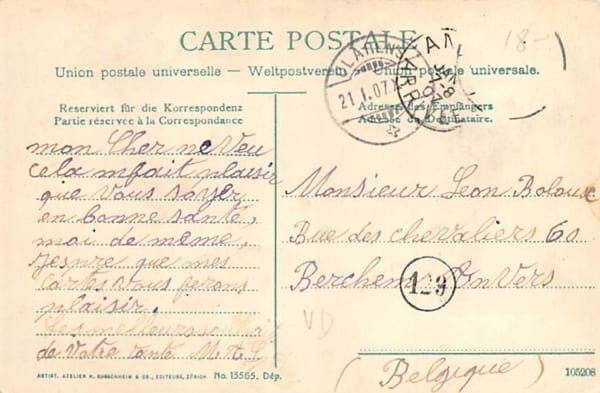 CARTE POSTALE
Union postale universelle — Weltpostverein — Union postale universale.
Reserviert für die Korrespondenz
Partie réservée à la Correspondance
Adresse des Empfängers
Adresse du Destinataire.
CLARENS
21.I.07.X
ARR
18-
mon Cher neveu
cela m fait plaisir
que vous soyer
en bonne santé,
moi de même,
jespre que mes
Cartes vous ferons
plaisir.
Les meilleurs
de votre tante M.
Monsieur Leon
Rue des chevaliers 60
Berchem Anvers
129
VD
(Belgique)
ARTIST. ATELIER H. GUGGENHEIM & CO., EDITEURS, ZÜRICH No. 13565. Dép.
105208